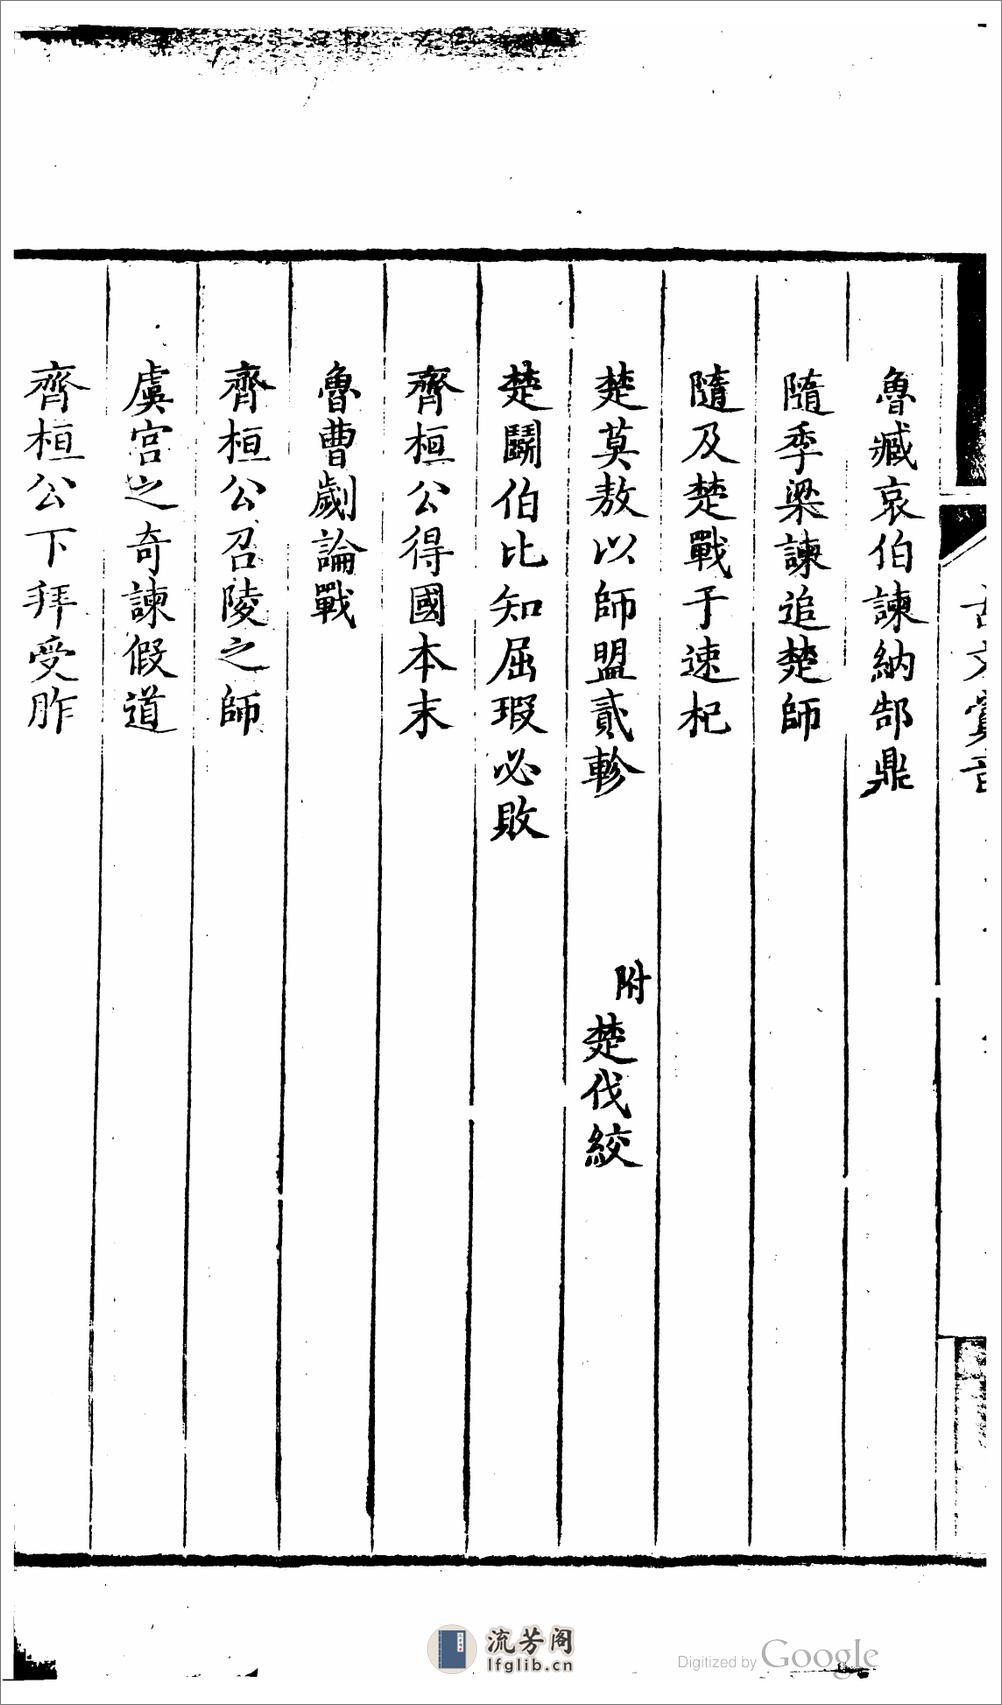 魯臧哀伯諫納郜鼎
隨季梁諫追楚師
隨及楚戰于速杞
楚莫敖以師盟貳軫 附楚伐絞
楚鬬伯比知屈瑕必敗
齊桓公得國本末
魯曹劌論戰
齊桓公召陵之師
虞宮之奇諫假道
齊桓公下拜受胙
流芳阁
lfglib.cn
Digitized by Google